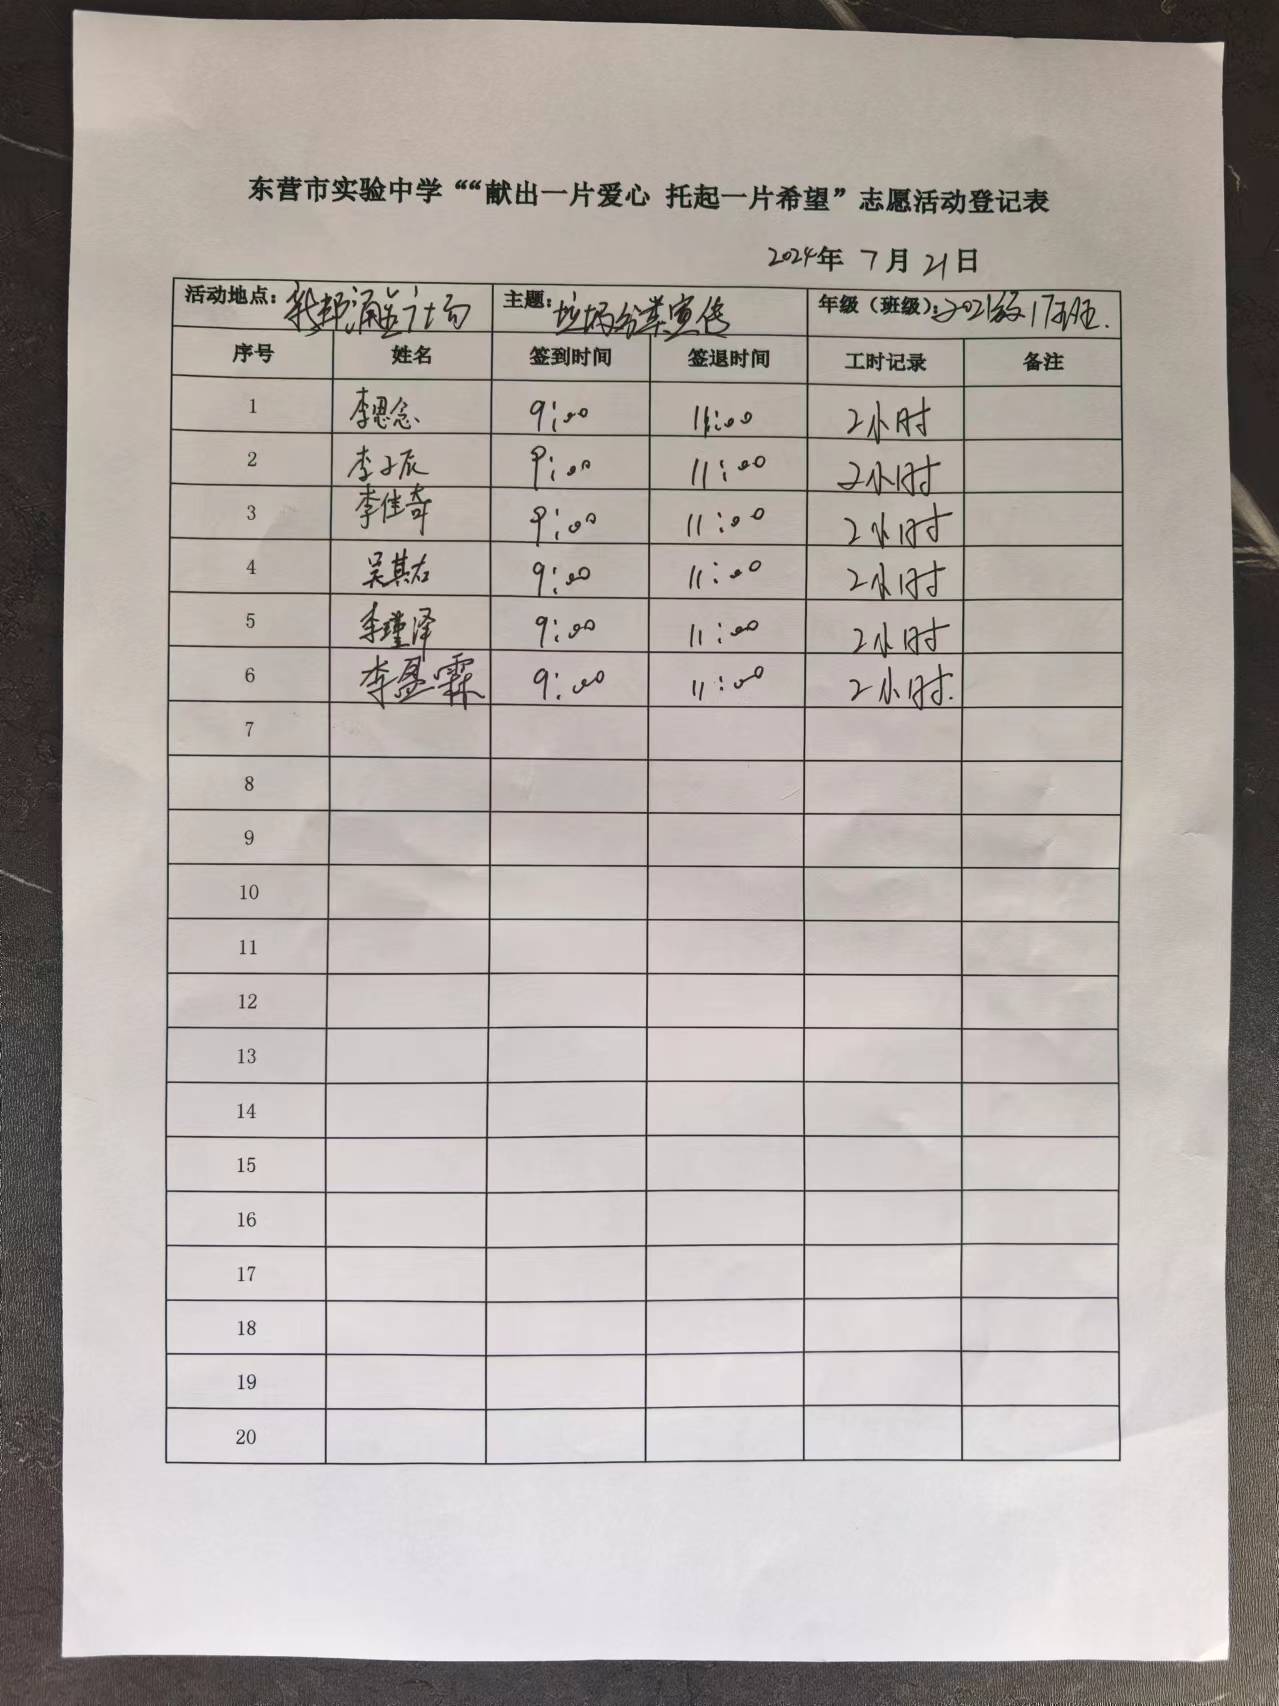 东营市实验中学““献出一片爱心 托起一片希望”志愿活动登记表
2024年 7月 21日
活动地点： 主题：垃圾分类宣传 年级（班级）：2021级17班
序号 姓名 签到时间 签退时间 工时记录 备注
1 李思念 9:00 11:00 2小时
2 李子辰 9:00 11:00 2小时
3 李佳奇 9:00 11:00 2小时
4 吴其右 9:00 11:00 2小时
5 李瑾泽 9:00 11:00 2小时
6 李盈霖 9:00 11:00 2小时.
7
8
9
10
11
12
13
14
15
16
17
18
19
20